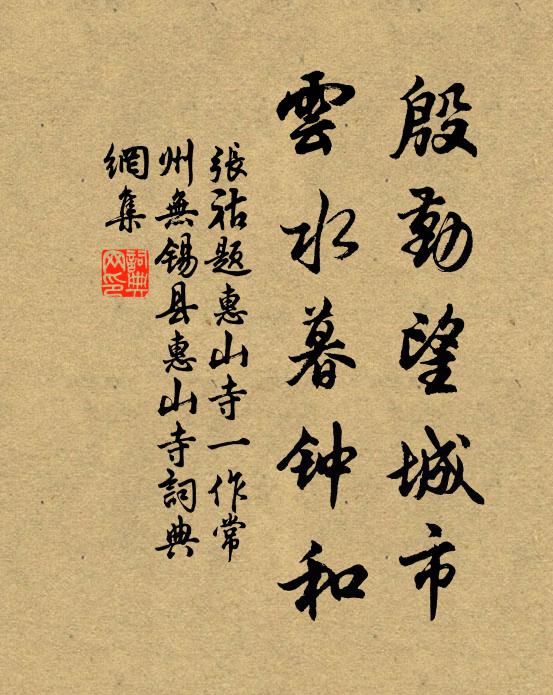 殷勤望城市
雲水暮钟和
張祜题惠山寺一作常
州無锡县惠山寺詞典
網集
詞典网印